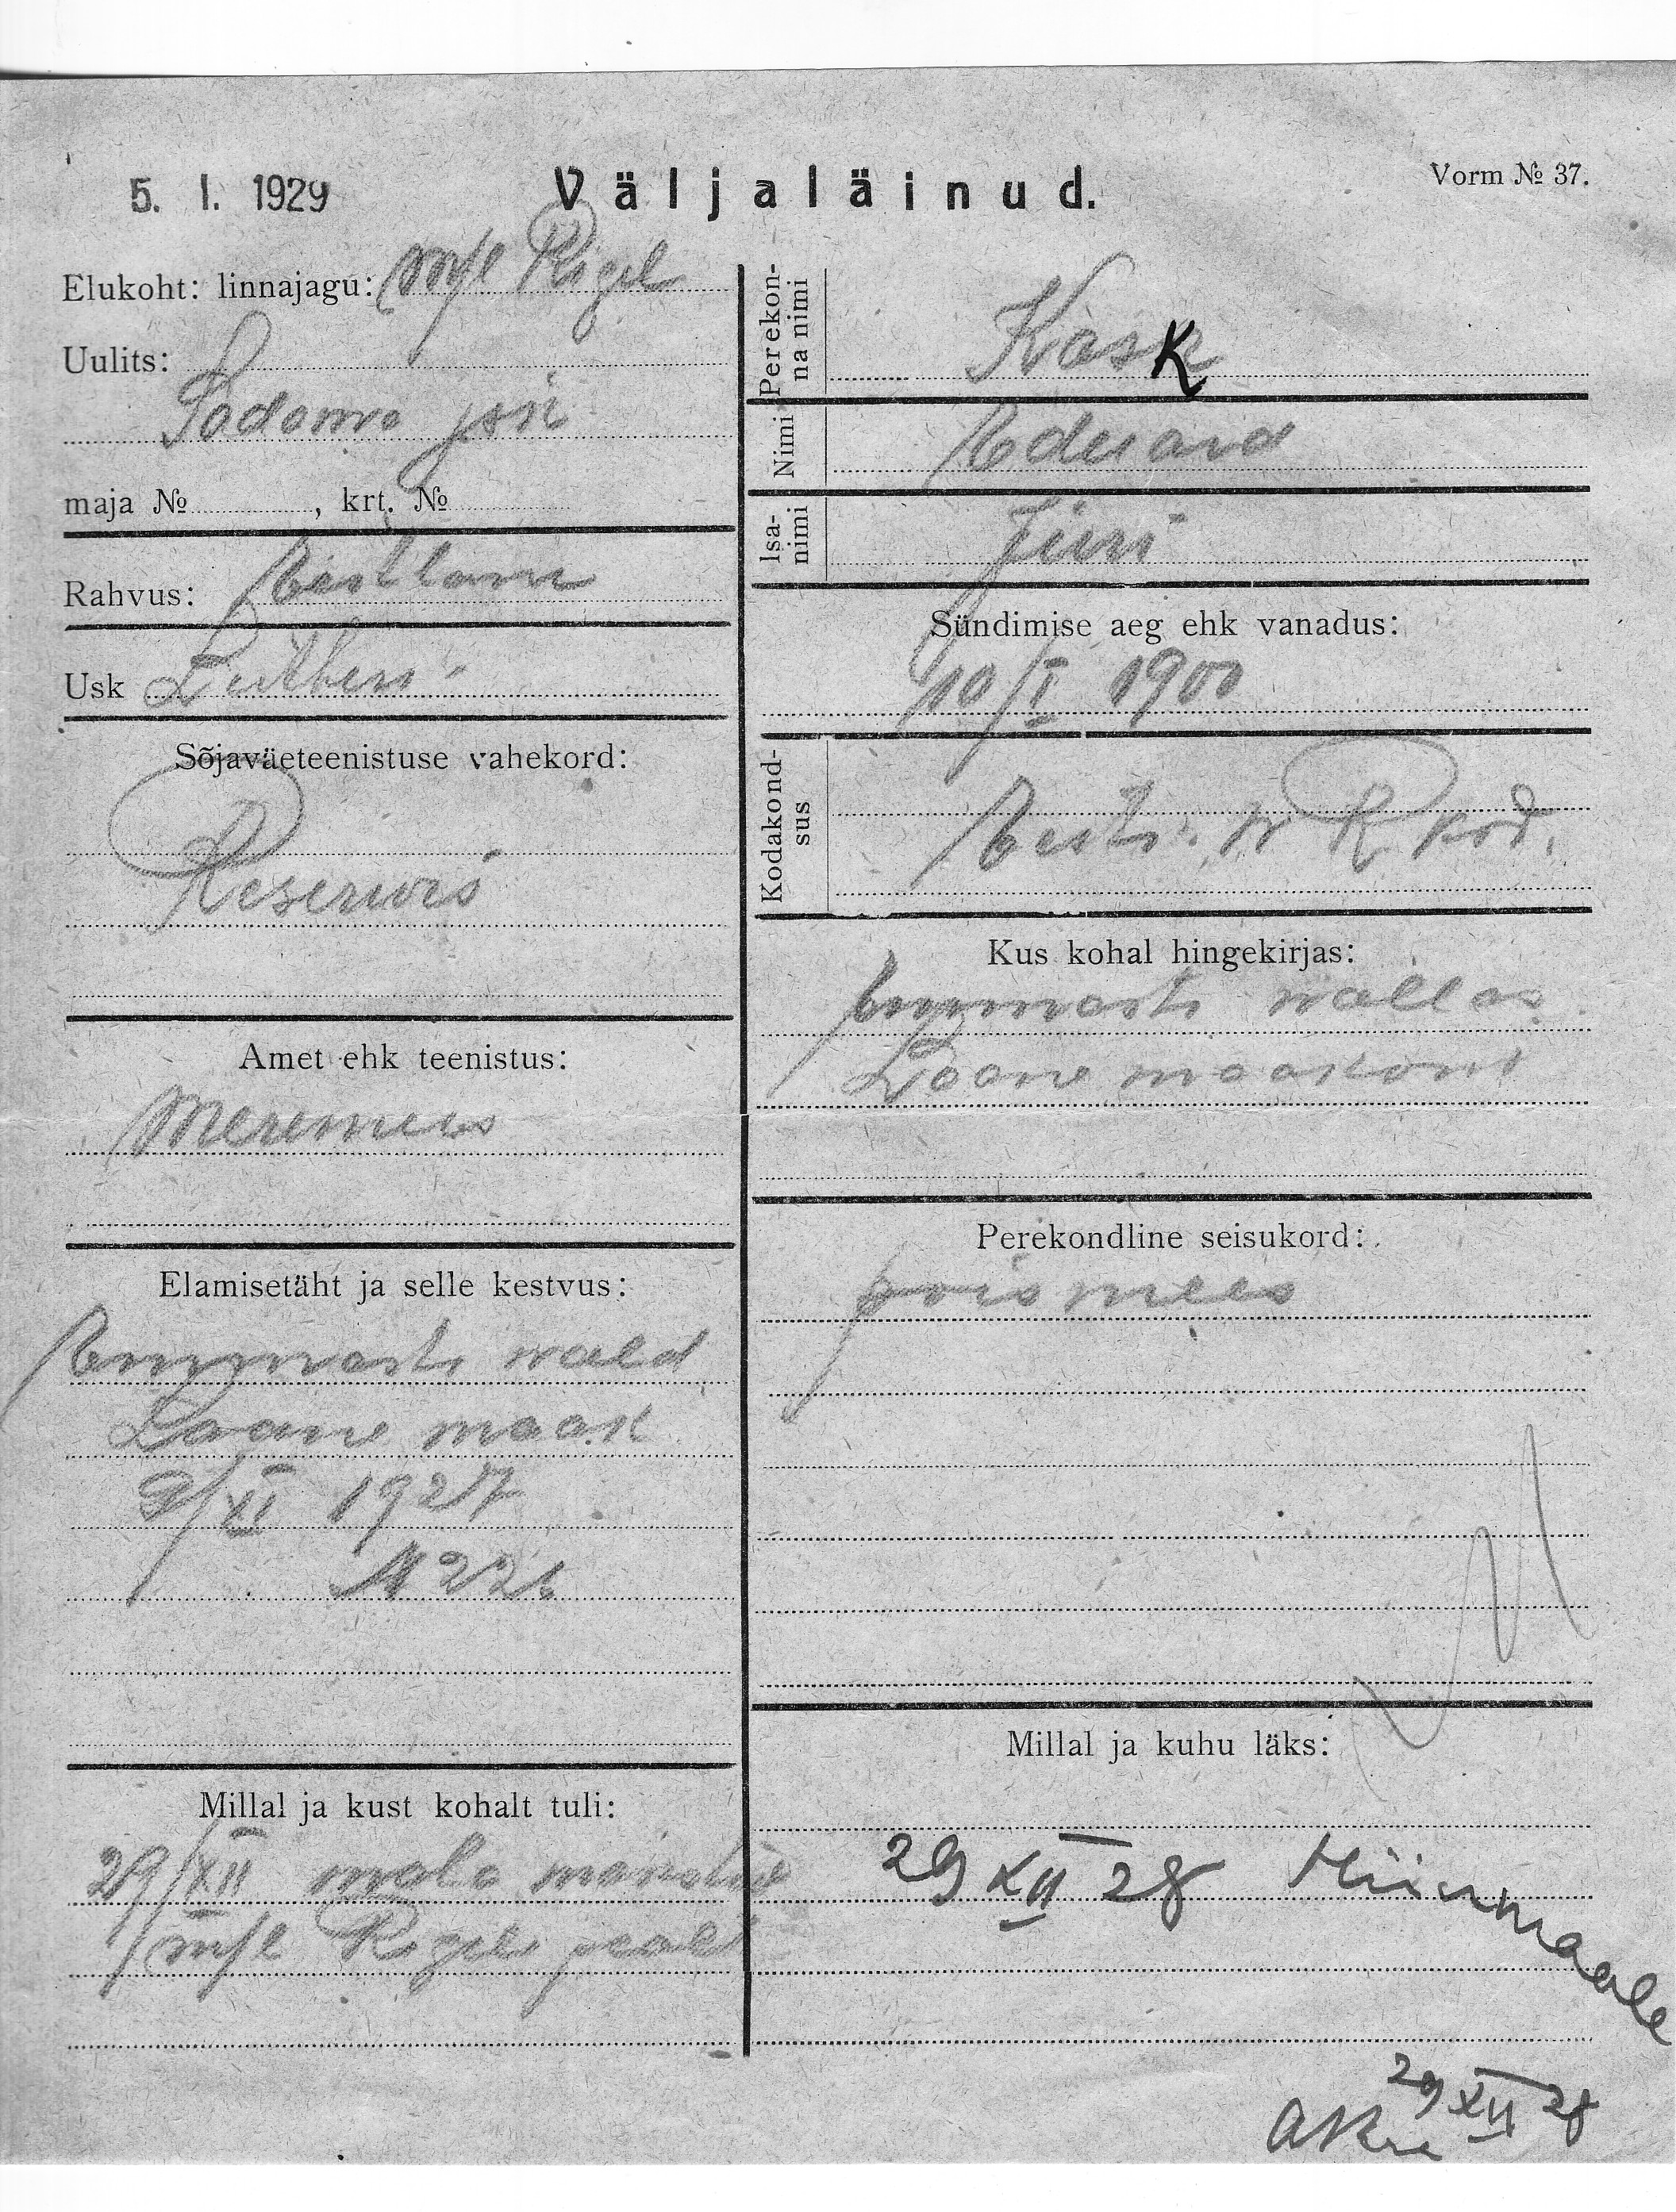 5. I. 1929
Väljaläinud.
Vorm № 37.
Elukoht: linnajagu: M/l Rigel
Uulits:
Sadama
maja № , krt. №
Rahvus: Eestlane
Usk Luther.
Sõjaväeteenistuse vahekord:
Reservis
Amet ehk teenistus:
Meremees
Elamisetäht ja selle kestvus:
Emmaste wald
Lääne maak
9/XI 1927
N 226
Millal ja kust kohalt tuli:
29/XII
m/l Rigeli pealt
Perekonna nimi
Kask
Nimi
Eduard
Isanimi
Jüri
Sündimise aeg ehk vanadus:
10/I 1900
Kodakondsus
Eesti W R kod.
Kus kohal hingekirjas:
Emmaste wallas
Lääne maakond
Perekondline seisukord:
poismees
Millal ja kuhu läks:
29 XII 28 Hiiumaale
29 XII 28